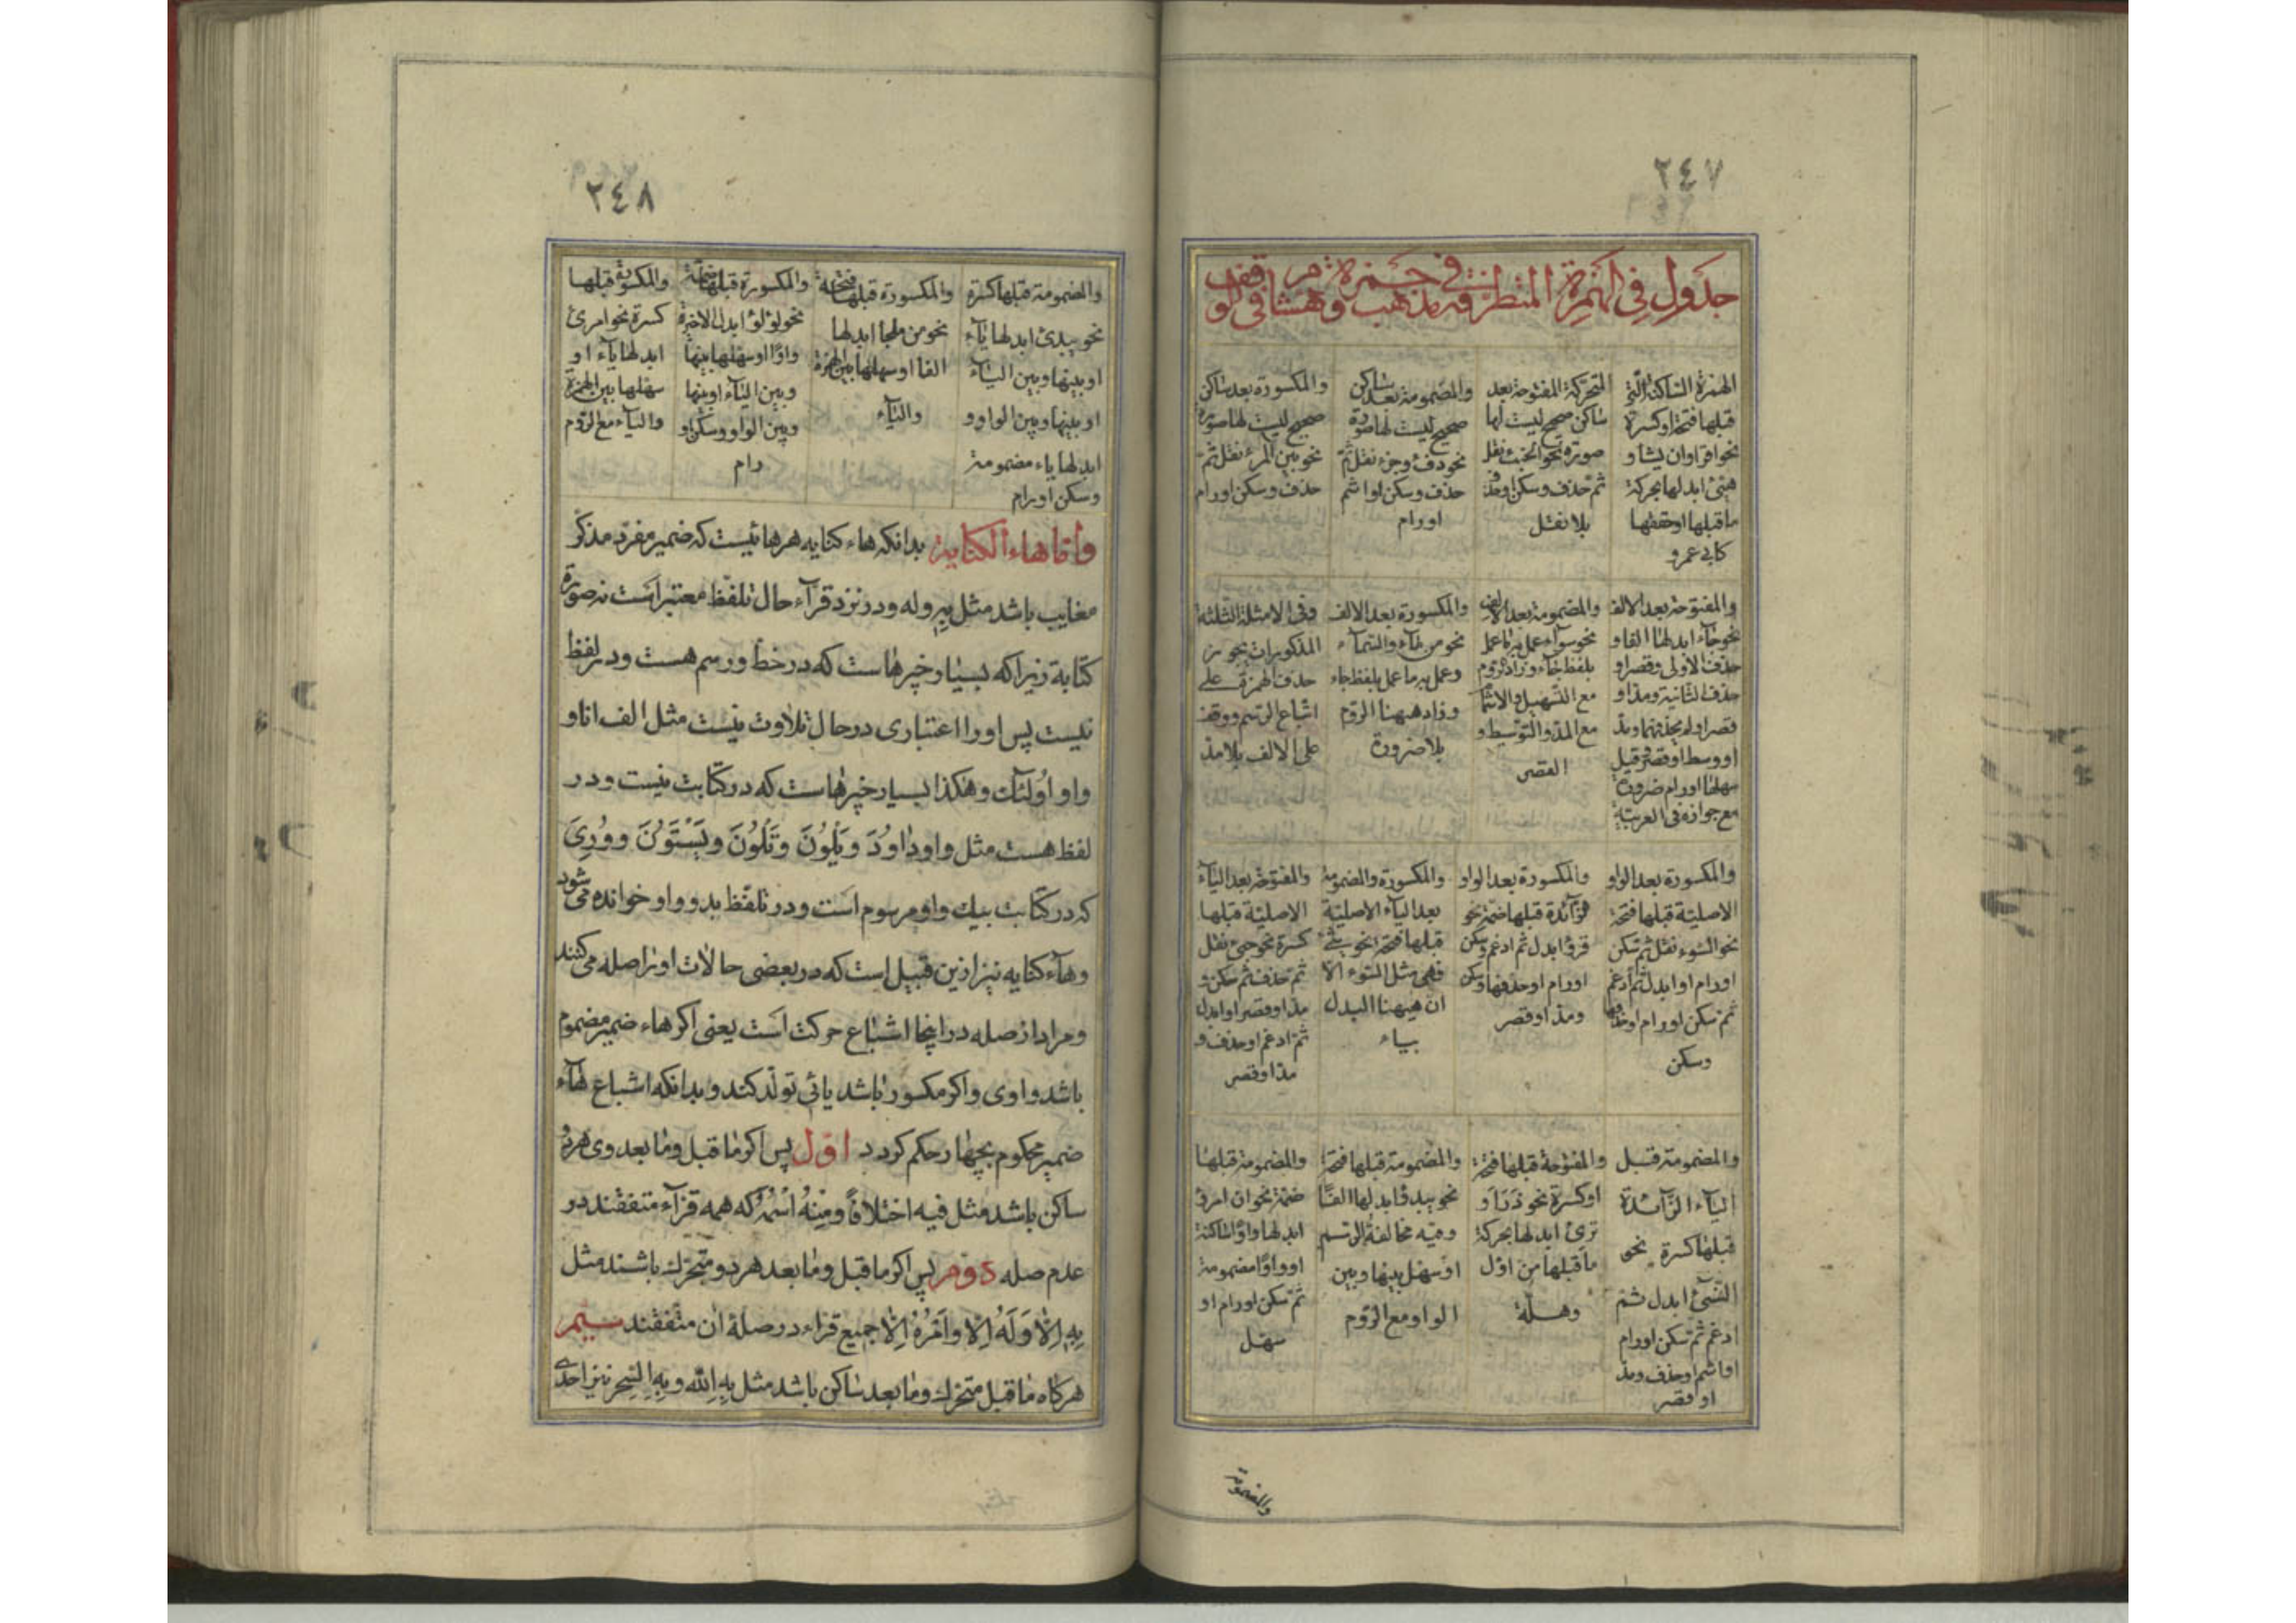 ٢٤٧
جدول في الهمزة المتطرفة في مذهب حمزة وهشام في الوقف
الهمزة الساكنة التي
قبلها فتحة او كسرة
نحو اقرا وان يشا و
هيئ ابدلها بحركة
ما قبلها او حققها
كابي عمرو
المتحركة المفتوحة بعد
ساكن صحيح ليست لها
صورة نحو الخبء نقل
ثم حذف وسكن او حذف
بلا نقل
والمضمومة بعد ساكن
صحيح ليست لها صورة
نحو دفء وجزء نقل ثم
حذف وسكن او اشم
او رام
والمكسورة بعد ساكن
صحيح ليست لها صورة
نحو بين المرء نقل ثم
حذف وسكن او رام
والمفتوحة بعد الالف
نحو جاء ابدلها الفا و
حذف الاولى وقصر او
حذف الثانية ومد او
قصر او لم يحذفهما ومد
او وسط او قصر وقيل
سهلها او رام ضرورة
مع جوازه في العربية
والمضمومة بعد الالف
نحو سواء عمل بها ما عمل
بلفظ جاء وزاد الروم
مع التسهيل والاشمام
مع المد والتوسيط و
القصر
والمكسورة بعد الالف
نحو من ماء والسماء
وعمل بها ما عمل بلفظ جاء
وزاد هيهنا الروم
بلا ضرورة
وفي الامثلة الثلثة
المذكورات يجوز
حذف الهمزة على
اتباع الرسم ووقف
على الالف بلا مد
والمكسورة بعد الواو
الاصلية قبلها فتحة
نحو السوء نقل ثم سكن
او رام او ابدل ثم ادغم
ثم سكن او رام او حذفها
وسكن
والمكسورة بعد الواو
الزائدة قبلها ضمة نحو
قروء ابدل ثم ادغم وسكن
او رام او حذفها وسكن
ومد او قصر
والمكسورة والمضمومة
بعد الياء الاصلية
قبلها فتحة نحو شيء
فهي مثل السوء الا
ان هيهنا البدل
بياء
والمفتوحة بعد الياء
الاصلية قبلها
كسرة نحو جيء نقل
ثم حذف ثم سكن و
مد او قصر او ابدل
ثم ادغم او حذف و
مد او قصر
والمضمومة قبل
الياء الزائدة
قبلها كسرة نحو
النسيئ ابدل ثم
ادغم ثم سكن او رام
او اشم او حذف ومد
او قصر
والمفتوحة قبلها فتحة
او كسرة نحو ذرأ و
قرئ ابدلها بحركة
ما قبلها من اول
وهلة
والمضمومة قبلها فتحة
نحو يبدؤا ابدلها الفا
وفيه مخالفة الرسم
او سهل بينها وبين
الواو مع الروم
والمضمومة قبلها
ضمة نحو ان امرؤ
ابدلها واوا ساكنة
او واوا مضمومة
ثم سكن او رام او
سهل
والمضمومة
٢٤٨
والمضمومة قبلها كسرة
نحو يبدئ ابدلها ياء
او بينها وبين الياء
او بينها وبين الواو و
ابدلها ياء مضمومة
وسكن او رام
والمكسورة قبلها فتحة
نحو من ملجا ابدلها
الفا او سهلها بين الهمزة
والياء
والمكسورة قبلها ضمة
نحو لؤلؤ ابدل الاخيرة
واوا او سهلها بينها
وبين الياء او بينها
وبين الواو وسكن او
رام
والمكسورة قبلها
كسرة نحو امرئ
ابدلها ياء او
سهلها بين الهمزة
والياء مع الروم
واما هاء الكناية بدانكه هاء كنايه هر هائيست كه ضمير مفرد مذكر
مغايب باشد مثل به وله ودر نزد قرآء حال تلفظ معتبر است نه صورة
كتابة زيرا كه بسيار چيرهاست كه در خط ورسم هست ودر لفظ
نيست پس او را اعتباري در حال تلاوت نيست مثل الف انا و
واو اولئك وهكذا بسيار چيرهاست كه در كتابت نيست ودر
لفظ هست مثل واو داوُدَ ويَلْوُنَ وتَلْوُنَ ويَسْتَوُنَ ووُرِىَ
كه در كتابت بيك واو مرسوم است ودر تلفظ بدو واو خوانده مى شود
وهآء كنايه نيز ازين قبيل است كه در بعضى حالات او را صله مى كنند
ومراد از صله در اينجا اشباع حركت است يعنى اكر هاء ضمير مضموم
باشد واوى واكر مكسور باشد يائى تولد كند وبدانكه اشباع هآء
ضمير محكوم بچهار حكم كردد اول پس اكر ما قبل وما بعد وى هر دو
ساكن باشد مثل فيه اختلافاً ومِنْهُ اسْمُهُ كه همه قرآء متفقند در
عدم صله دوم پس اكر ما قبل وما بعد هر دو متحرك باشند مثل
بِهِ اِلّا وَلَهُ اِلّا واَمْرُهُ اِلّا جميع قراء در صلهٔ ان متفقند سيم
هركاه ما قبل متحرك وما بعد ساكن باشد مثل بِهِ الله وبِهِ السِحر نيز احدى